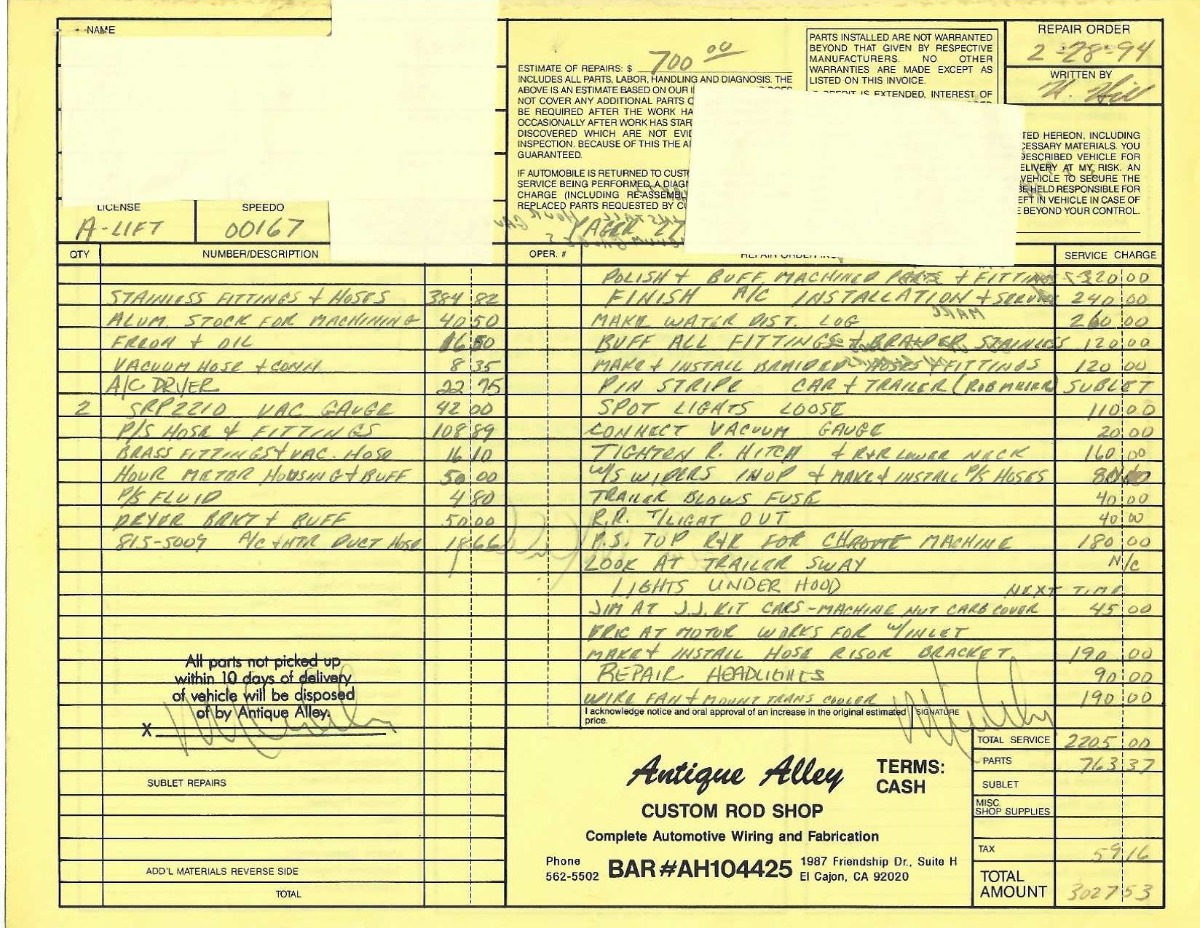 NAME
ESTIMATE OF REPAIRS: $ 700 00
INCLUDES ALL PARTS, LABOR, HANDLING AND DIAGNOSIS. THE
ABOVE IS AN ESTIMATE BASED ON OUR
NOT COVER ANY ADDITIONAL PARTS
BE REQUIRED AFTER THE WORK HA
OCCASIONALLY AFTER WORK HAS STAR
DISCOVERED WHICH ARE NOT EVI
INSPECTION. BECAUSE OF THIS THE
GUARANTEED.
IF AUTOMOBILE IS RETURNED TO CUST
SERVICE BEING PERFORMED, A DIAGN
CHARGE (INCLUDING RE-ASSEMBL
REPLACED PARTS REQUESTED BY
PARTS INSTALLED ARE NOT WARRANTED
BEYOND THAT GIVEN BY RESPECTIVE
MANUFACTURERS. NO OTHER
WARRANTIES ARE MADE EXCEPT AS
LISTED ON THIS INVOICE.
IS EXTENDED, INTEREST OF
REPAIR ORDER
2-28-94
WRITTEN BY
Hill
TED HEREON, INCLUDING
CESSARY MATERIALS. YOU
DESCRIBED VEHICLE FOR
ELIVERY AT MY RISK. AN
VEHICLE TO SECURE THE
BE HELD RESPONSIBLE FOR
EFT IN VEHICLE IN CASE OF
E BEYOND YOUR CONTROL.
LICENSE SPEEDO
A-LIFT 00167
QTY NUMBER/DESCRIPTION OPER. # SERVICE CHARGE
POLISH & BUFF MACHINED PARTS & FITTINGS 320 00
STAINLESS FITTINGS & HOSES 384 82 FINISH A/C INSTALLATION & SERVICE 240 00
ALUM. STOCK FOR MACHINING 40 50 MAKE WATER DIST. LOG 260 00
FREON & OIL 16 50 BUFF ALL FITTINGS & STAINLESS 120 00
VACUUM HOSE & CONN 8 35 MAKE & INSTALL BRAIDED HOSES & FITTINGS 120 00
A/C DRYER 22 75 PIN STRIPE CAR & TRAILER SUBLET
2 SRP2210 VAC GAUGE 42 00 SPOT LIGHTS LOOSE 110 00
P/S HOSE & FITTINGS 108 89 CONNECT VACUUM GAUGE 20 00
BRASS FITTINGS & VAC. HOSE 16 10 TIGHTEN R. HITCH & R&R LOWER NECK 160 00
HOUR METER HOUSING & BUFF 50 00 W/S WIPERS INOP & MAKE & INSTALL P/S HOSES
P/S FLUID 4 80 TRAILER BLOWS FUSE 40 00
DRYER BRKT & BUFF 50 00 R.R. T/LIGHT OUT 40 00
815-5009 A/C & HTR DUCT HOSE 18 66 P.S. TOP R&R FOR CHROME MACHINE 180 00
LOOK AT TRAILER SWAY N/C
LIGHTS UNDER HOOD NEXT TIME
JIM AT J.J. KIT CARS - MACHINE NUT CARB COVER 45 00
ERIC AT MOTOR WORKS FOR W/INLET
MAKE & INSTALL HOSE RISOR BRACKET 190 00
REPAIR HEADLIGHTS 90 00
WIRE FAN & MOUNT TRANS COOLER 190 00
All parts not picked up
within 10 days of delivery
of vehicle will be disposed
of by Antique Alley.
X
I acknowledge notice and oral approval of an increase in the original estimated price. SIGNATURE
TOTAL SERVICE 2205 00
PARTS 763 37
SUBLET
MISC. SHOP SUPPLIES
TAX 59 16
TOTAL AMOUNT 3027 53
SUBLET REPAIRS
ADD'L MATERIALS REVERSE SIDE
TOTAL
Antique Alley TERMS: CASH
CUSTOM ROD SHOP
Complete Automotive Wiring and Fabrication
Phone 562-5502 BAR #AH104425 1987 Friendship Dr., Suite H
El Cajon, CA 92020